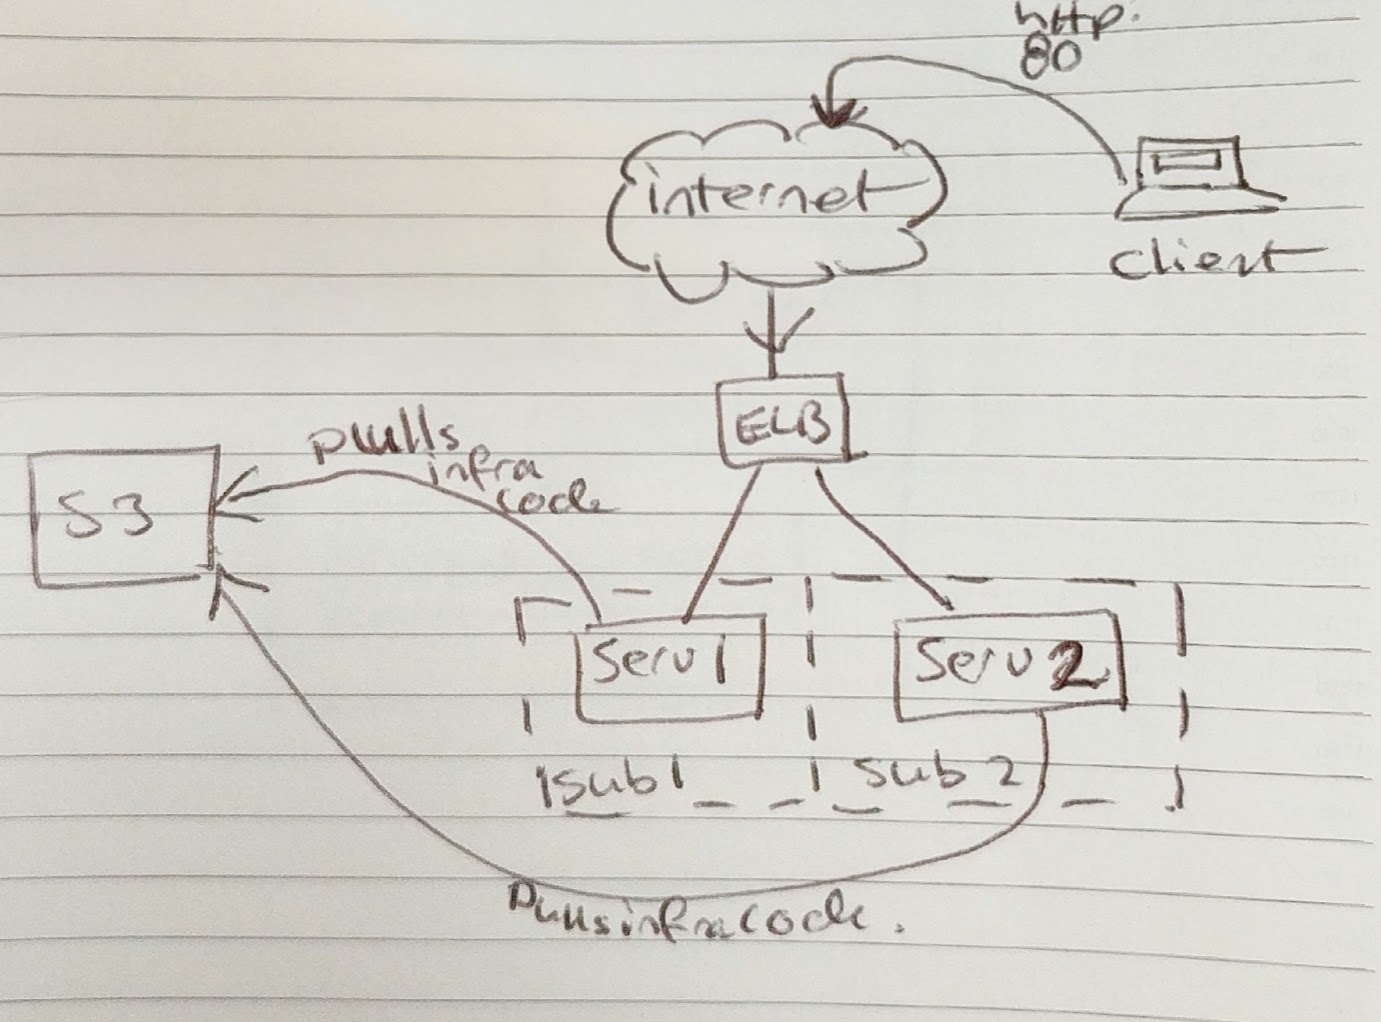 http:
80
internet
client
ELB
pulls
infra
code
S3
Serv 1
Serv 2
sub 1
sub 2
Pulls infra code.